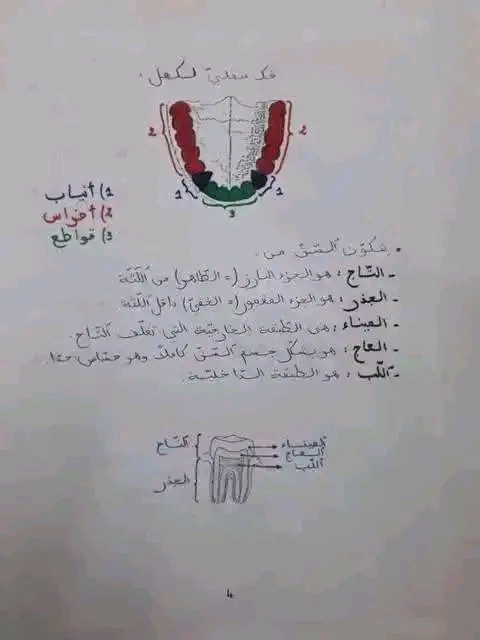 فك سفلي لكهل.
2
2
1
1
3
1) أنياب
2) أضراس
3) قواطع
• يتكوّن السّنّ من :
- التّاج : هو الجزء البارز (= الظّاهر) من اللّثة
- الجذر : هو الجزء المغمور (= الخفيّ) داخل اللّثة.
- الميناء : هي الطّبقة الخارجيّة التي تغلّف التّاج.
- العاج : هو يشكّل جسم السّنّ كاملا وهو حسّاس جدّا.
- اللّب : هو الطّبقة الدّاخليّة.
التّاج
الجذر
الميناء
العاج
اللّب
4